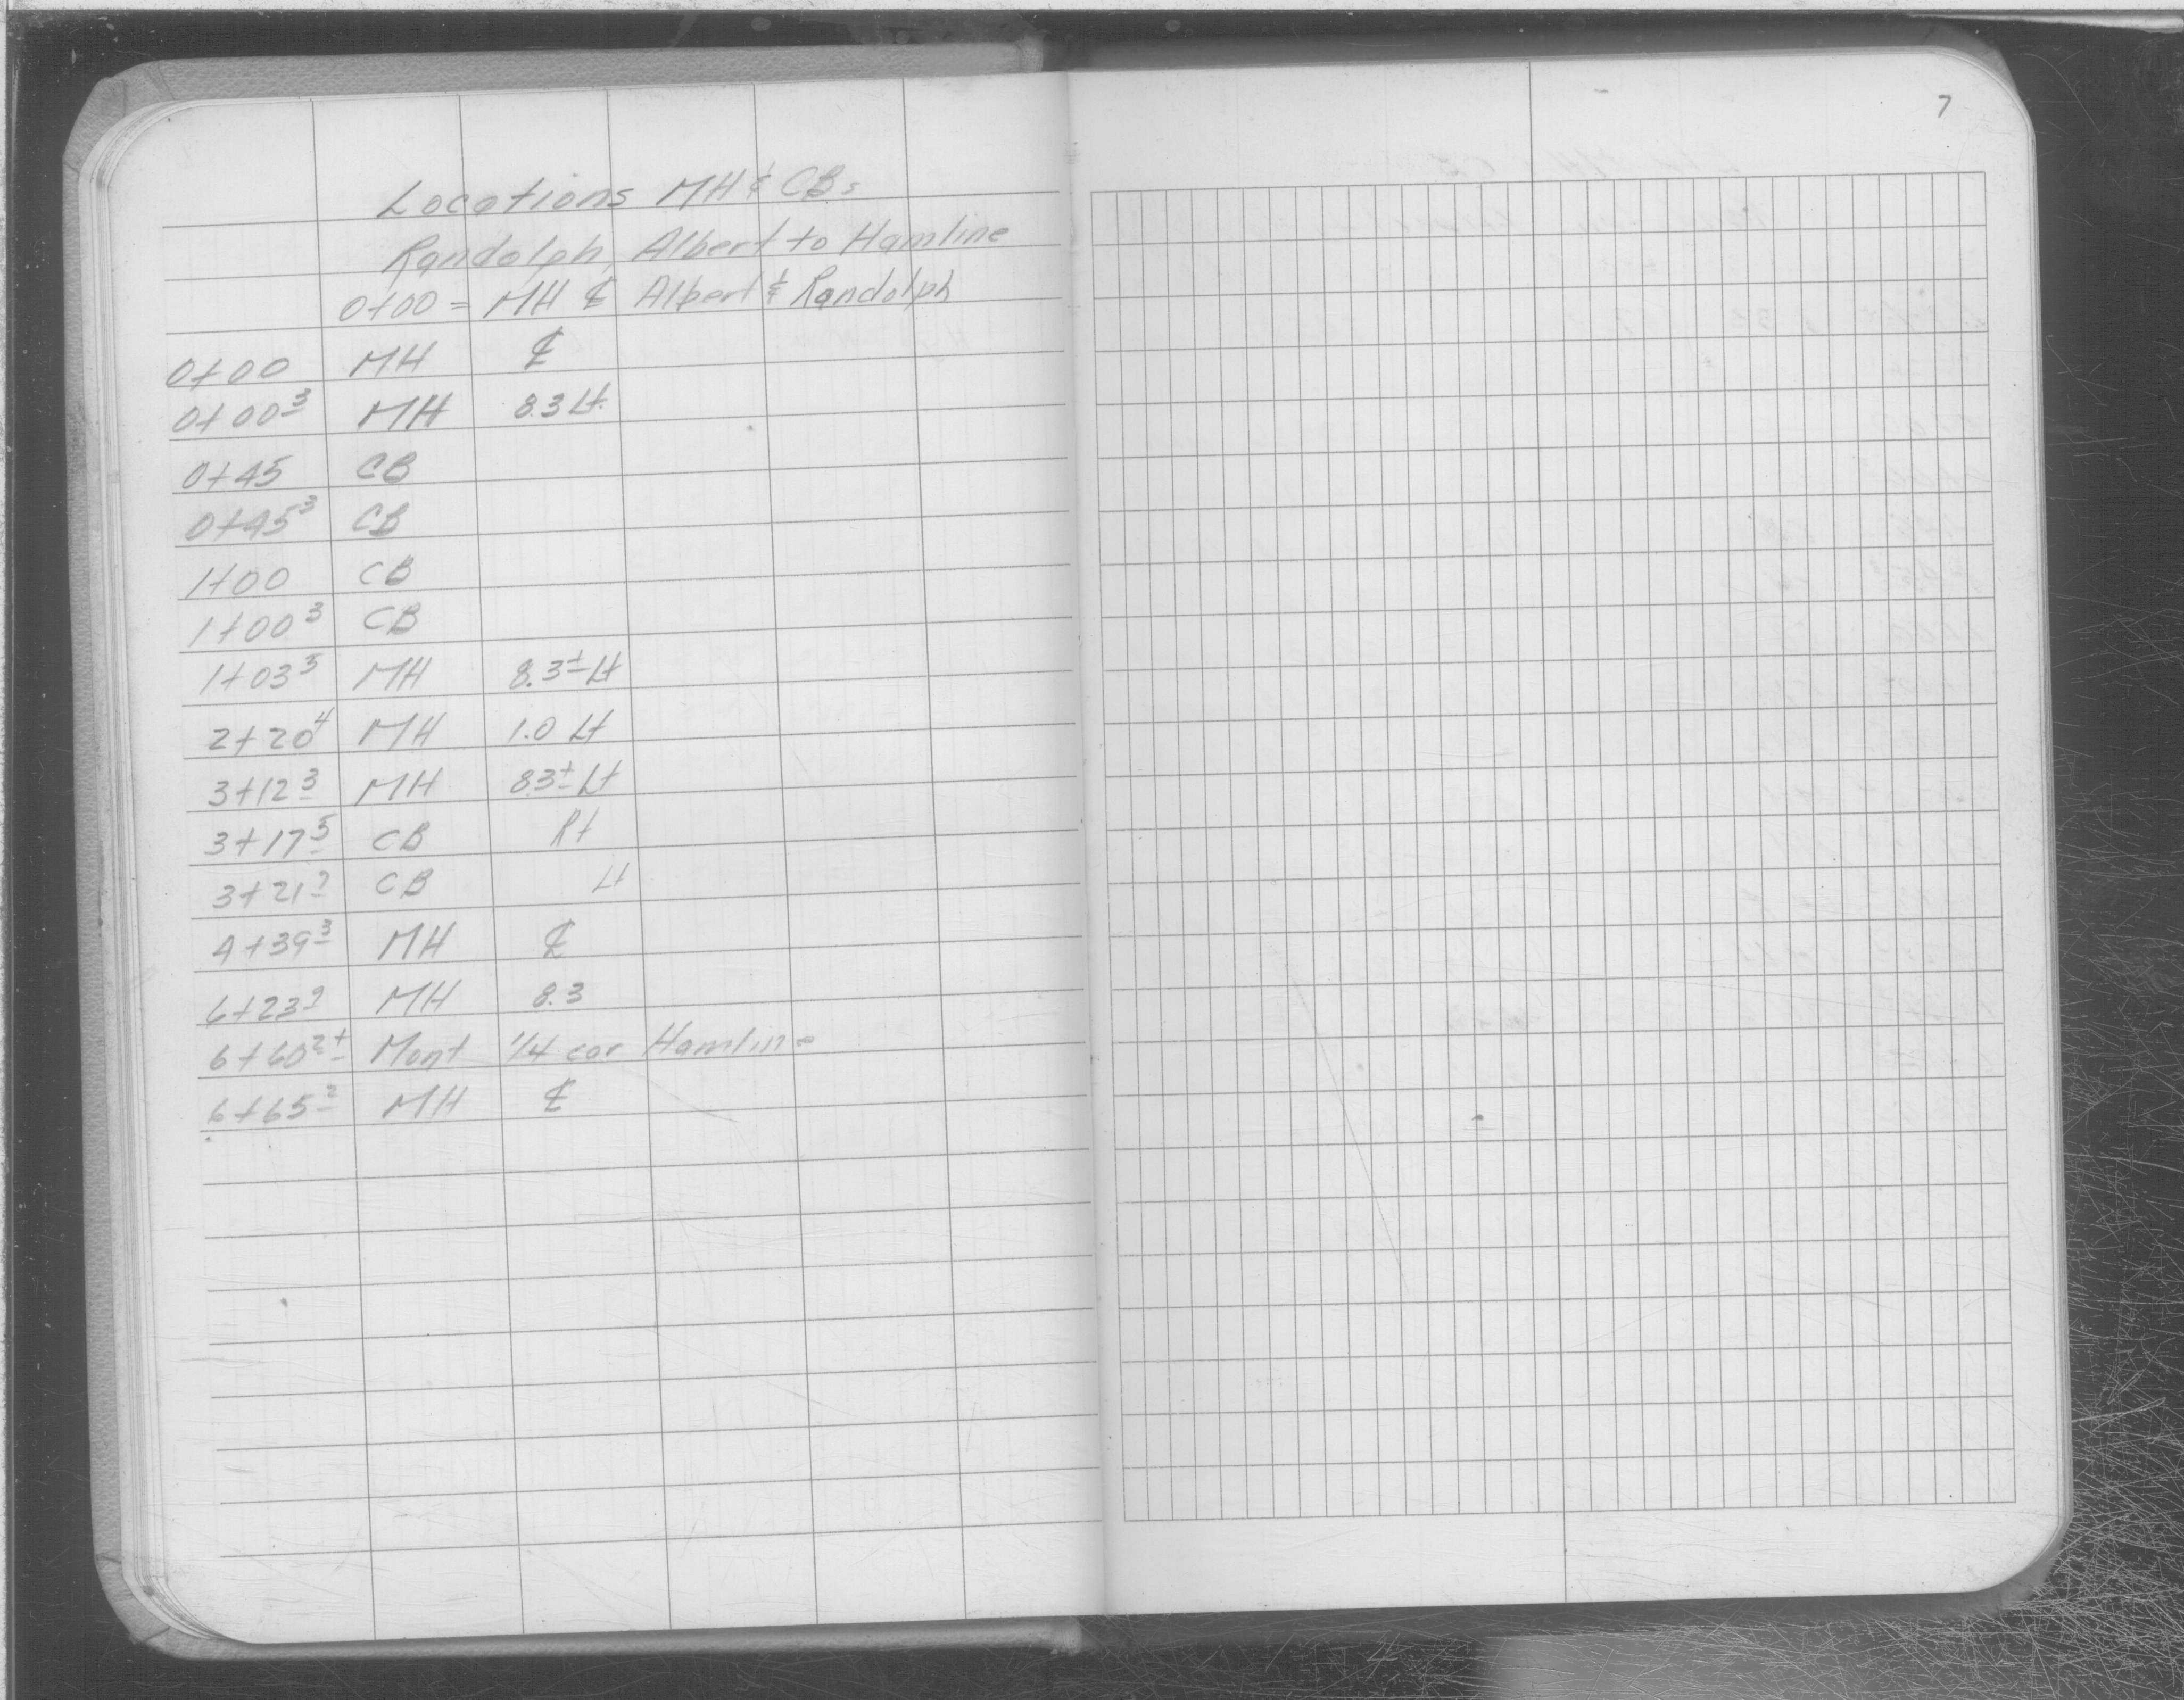 7
Locations MH & CBs
Randolph, Albert to Hamline
0+00 = MH ℄ Albert & Randolph
0+00 MH ℄
0+00³ MH 8.3 Lt.
0+45 CB
0+45³ CB
1+00 CB
1+00³ CB
1+03⁵ MH 8.3± Lt
2+20⁴ MH 1.0 Lt
3+12³ MH 8.3± Lt
3+17⁵ CB Rt
3+21 CB Lt
4+39³ MH ℄
6+23⁹ MH 8.3
6+60²± Mont 1/4 cor Hamline
6+65² MH ℄